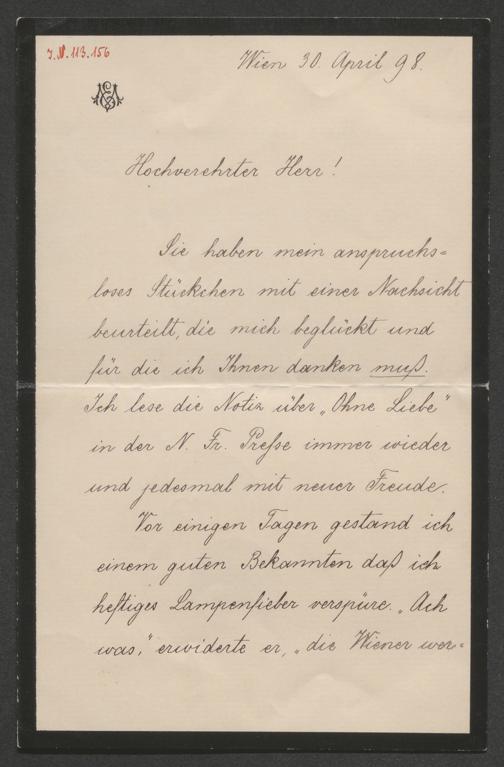 J.N. 113.156
Wien 30. April 98.
Hochverehrter Herr!
Sie haben mein anspruchs=
loses Stückchen mit einer Nachsicht
beurteilt, die mich beglückt und
für die ich Ihnen danken muß.
Ich lese die Notiz über „Ohne Liebe"
in der N. Fr. Presse immer wieder
und jedesmal mit neuer Freude.
Vor einigen Tagen gestand ich
einem guten Bekannten daß ich
heftiges Lampenfieber verspüre. „Ach
was," erwiderte er, „die Wiener wer=